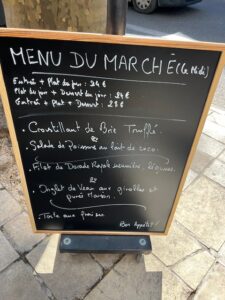 MENU DU MARCHÉ (Le Midi)
Entrée + Plat du jour : 24 €
Plat du jour + Dessert du jour : 24 €
Entrée + Plat + Dessert : 28 €
• Croustillant de Brie Truffé.
ou
• Salade de Poissons au lait de coco.
• Filet de Dorade Royale meunière, légumes.
ou
• Onglet de Veau aux girolles et
purée Maison.
• Tarte aux fraises.
Bon Appétit !